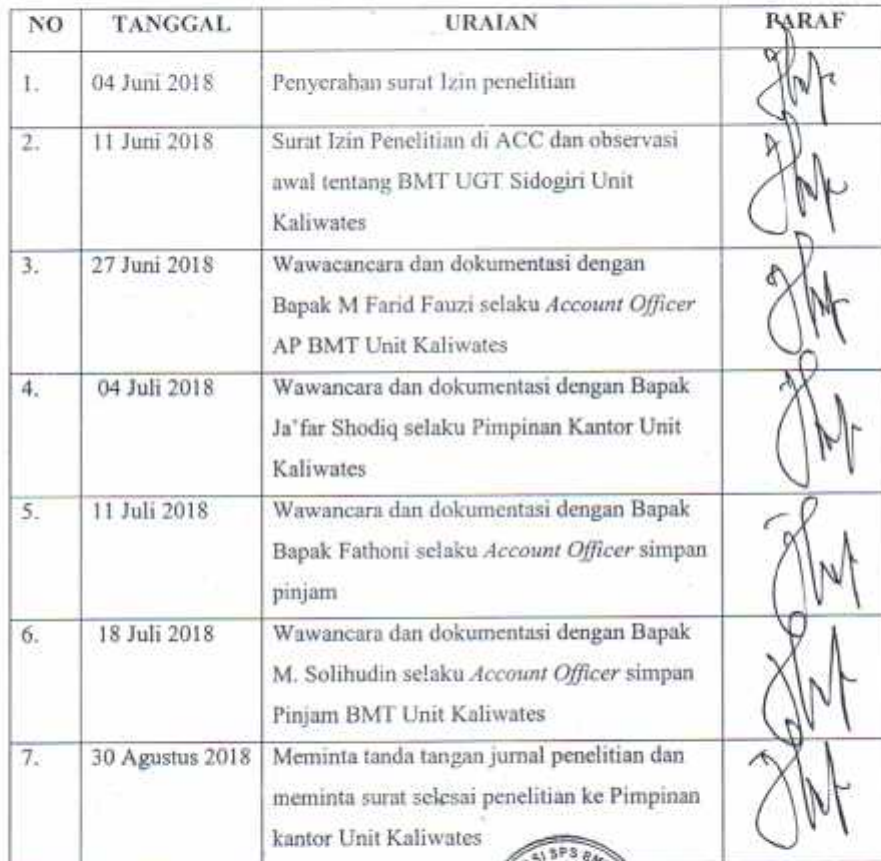 NO TANGGAL URAIAN PARAF
1. 04 Juni 2018 Penyerahan surat Izin penelitian
2. 11 Juni 2018 Surat Izin Penelitian di ACC dan observasi
awal tentang BMT UGT Sidogiri Unit
Kaliwates
3. 27 Juni 2018 Wawacancara dan dokumentasi dengan
Bapak M Farid Fauzi selaku Account Officer
AP BMT Unit Kaliwates
4. 04 Juli 2018 Wawancara dan dokumentasi dengan Bapak
Ja'far Shodiq selaku Pimpinan Kantor Unit
Kaliwates
5. 11 Juli 2018 Wawancara dan dokumentasi dengan Bapak
Bapak Fathoni selaku Account Officer simpan
pinjam
6. 18 Juli 2018 Wawancara dan dokumentasi dengan Bapak
M. Solihudin selaku Account Officer simpan
Pinjam BMT Unit Kaliwates
7. 30 Agustus 2018 Meminta tanda tangan jurnal penelitian dan
meminta surat selesai penelitian ke Pimpinan
kantor Unit Kaliwates
SPS